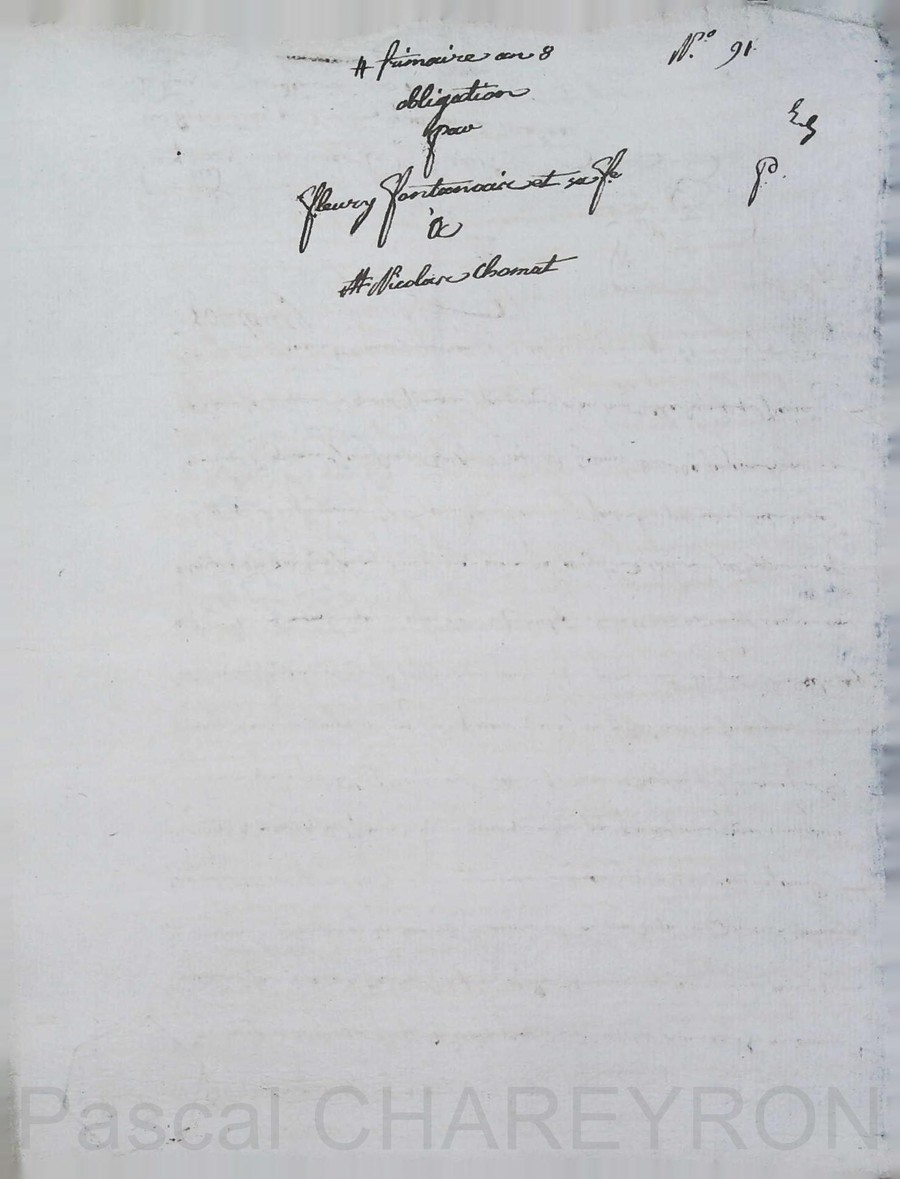 frimaire an 8
N.° 91
obligation
pour
Fleury fontannair et sa fe
à
Nicolas Chomat
Pascal CHAREYRON